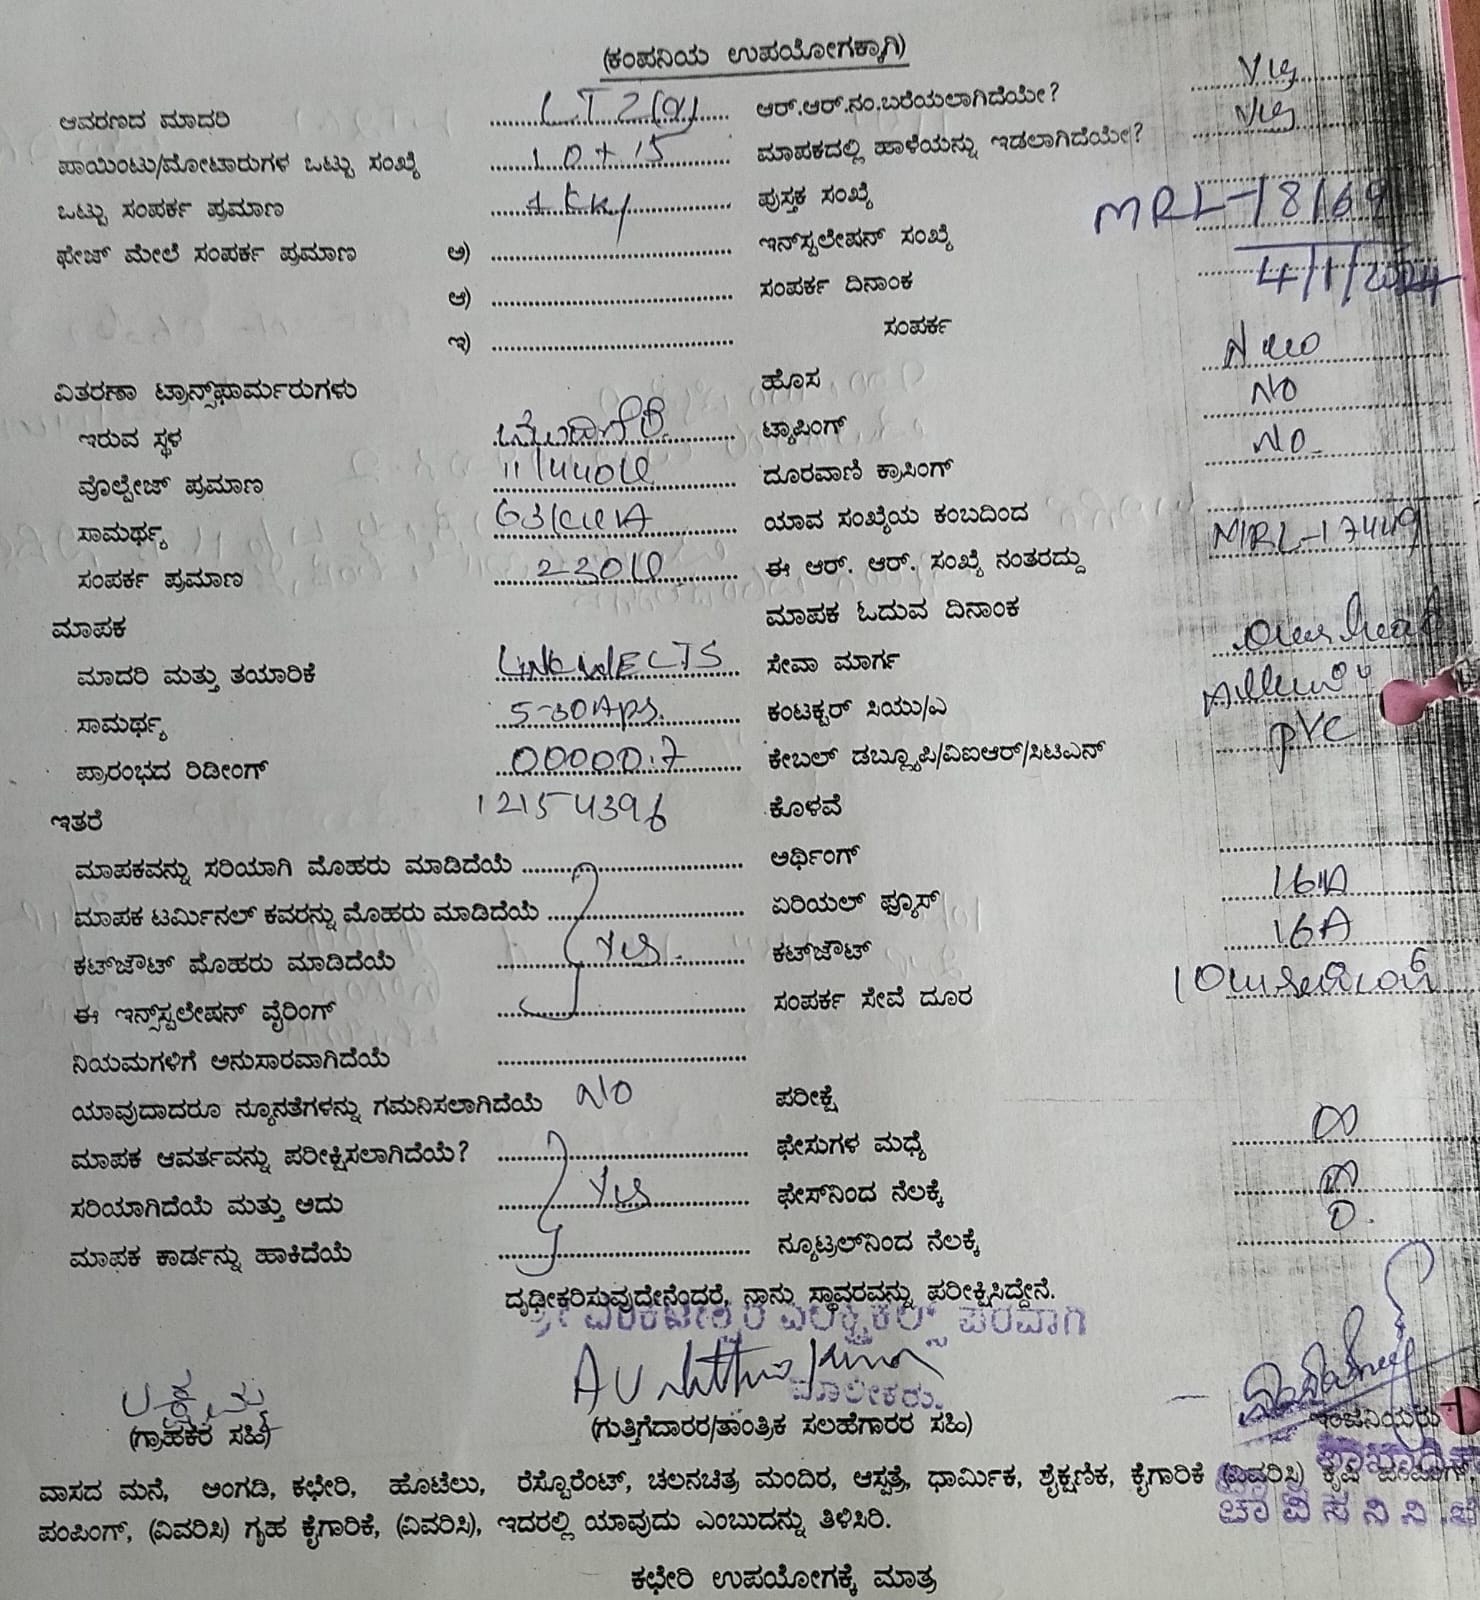 (ಕಂಪನಿಯ ಉಪಯೋಗಕ್ಕಾಗಿ)
ಆವರಣದ ಮಾದರಿ LT 2(a) ಆರ್.ಆರ್.ನಂ.ಬರೆಯಲಾಗಿದೆಯೇ? Yes
ಪಾಯಿಂಟು/ಮೋಟಾರುಗಳ ಒಟ್ಟು ಸಂಖ್ಯೆ ಮಾಪಕದಲ್ಲಿ ಹಾಳೆಯನ್ನು ಇಡಲಾಗಿದೆಯೇ? Yes
ಒಟ್ಟು ಸಂಪರ್ಕ ಪ್ರಮಾಣ ಪುಸ್ತಕ ಸಂಖ್ಯೆ
ಫೇಜ್ ಮೇಲೆ ಸಂಪರ್ಕ ಪ್ರಮಾಣ ಅ) ಇನ್‌ಸ್ಟಲೇಷನ್ ಸಂಖ್ಯೆ MRL-18169
ಆ) ಸಂಪರ್ಕ ದಿನಾಂಕ 4/1/2024
ಇ) ಸಂಪರ್ಕ
ವಿತರಣಾ ಟ್ರಾನ್ಸ್‌ಫಾರ್ಮರುಗಳು ಹೊಸ New
ಇರುವ ಸ್ಥಳ ಟ್ಯಾಪಿಂಗ್ No
ವೊಲ್ಟೇಜ್ ಪ್ರಮಾಣ 11/440V ದೂರವಾಣಿ ಕ್ರಾಸಿಂಗ್ No
ಸಾಮರ್ಥ್ಯ 63KVA ಯಾವ ಸಂಖ್ಯೆಯ ಕಂಬದಿಂದ
ಸಂಪರ್ಕ ಪ್ರಮಾಣ 230V ಈ ಆರ್. ಆರ್. ಸಂಖ್ಯೆ ನಂತರದ್ದು MRL-17449
ಮಾಪಕ ಮಾಪಕ ಓದುವ ದಿನಾಂಕ
ಮಾದರಿ ಮತ್ತು ತಯಾರಿಕೆ ಸೇವಾ ಮಾರ್ಗ Over head
ಸಾಮರ್ಥ್ಯ 5-30Aps. ಕಂಟಕ್ಟರ್ ಸಿಯು/ಎ
ಪ್ರಾರಂಭದ ರಿಡೀಂಗ್ 00000.7 ಕೇಬಲ್ ಡಬ್ಲ್ಯೂಪಿ/ವಿಐಆರ್/ಸಿಟಿಎಸ್ PVC
ಇತರೆ 12154396 ಕೊಳವೆ
ಮಾಪಕವನ್ನು ಸರಿಯಾಗಿ ಮೊಹರು ಮಾಡಿದೆಯೆ ಅರ್ಥಿಂಗ್
ಮಾಪಕ ಟರ್ಮಿನಲ್ ಕವರನ್ನು ಮೊಹರು ಮಾಡಿದೆಯೆ ಏರಿಯಲ್ ಫ್ಯೂಸ್ 16A
ಕಟ್‌ಔಟ್ ಮೊಹರು ಮಾಡಿದೆಯೆ Yes. ಕಟ್‌ಔಟ್ 16A
ಈ ಇನ್ಸ್‌ಸ್ಟಲೇಷನ್ ವೈರಿಂಗ್ ಸಂಪರ್ಕ ಸೇವೆ ದೂರ
ನಿಯಮಗಳಿಗೆ ಅನುಸಾರವಾಗಿದೆಯೆ
ಯಾವುದಾದರೂ ನ್ಯೂನತೆಗಳನ್ನು ಗಮನಿಸಲಾಗಿದೆಯೆ No ಪರೀಕ್ಷೆ
ಮಾಪಕ ಆವರ್ತವನ್ನು ಪರೀಕ್ಷಿಸಲಾಗಿದೆಯೆ? ಫೇಸುಗಳ ಮಧ್ಯೆ ∞
ಸರಿಯಾಗಿದೆಯೆ ಮತ್ತು ಅದು Yes ಫೇಸ್‌ನಿಂದ ನೆಲಕ್ಕೆ ∞
ಮಾಪಕ ಕಾರ್ಡನ್ನು ಹಾಕಿದೆಯೆ ನ್ಯೂಟ್ರಲ್‌ನಿಂದ ನೆಲಕ್ಕೆ 0.
ದೃಢೀಕರಿಸುವುದೇನೆಂದರೆ, ನಾನು ಸ್ಥಾವರವನ್ನು ಪರೀಕ್ಷಿಸಿದ್ದೇನೆ.
ಶ್ರೀ ವೆಂಕಟೇಶ್ವರ ಎಲೆಕ್ಟ್ರಿಕಲ್ಸ್ ಪರವಾಗಿ
ಲಕ್ಷ್ಮಮ್ಮ ಮಾಲೀಕರು.
(ಗ್ರಾಹಕರ ಸಹಿ) (ಗುತ್ತಿಗೆದಾರರ/ತಾಂತ್ರಿಕ ಸಲಹೆಗಾರರ ಸಹಿ) ಇಂಜಿನಿಯರು
ವಾಸದ ಮನೆ, ಅಂಗಡಿ, ಕಛೇರಿ, ಹೊಟೆಲು, ರೆಸ್ಟೊರೆಂಟ್, ಚಲನಚಿತ್ರ ಮಂದಿರ, ಆಸ್ಪತ್ರೆ, ಧಾರ್ಮಿಕ, ಶೈಕ್ಷಣಿಕ, ಕೈಗಾರಿಕೆ (ವಿವರಿಸಿ) ಕೃಷಿ
ಪಂಪಿಂಗ್, (ವಿವರಿಸಿ) ಗೃಹ ಕೈಗಾರಿಕೆ, (ವಿವರಿಸಿ), ಇದರಲ್ಲಿ ಯಾವುದು ಎಂಬುದನ್ನು ತಿಳಿಸಿರಿ. ಚಾ ವಿ ಸ ನಿ ನಿ
ಕಛೇರಿ ಉಪಯೋಗಕ್ಕೆ ಮಾತ್ರ